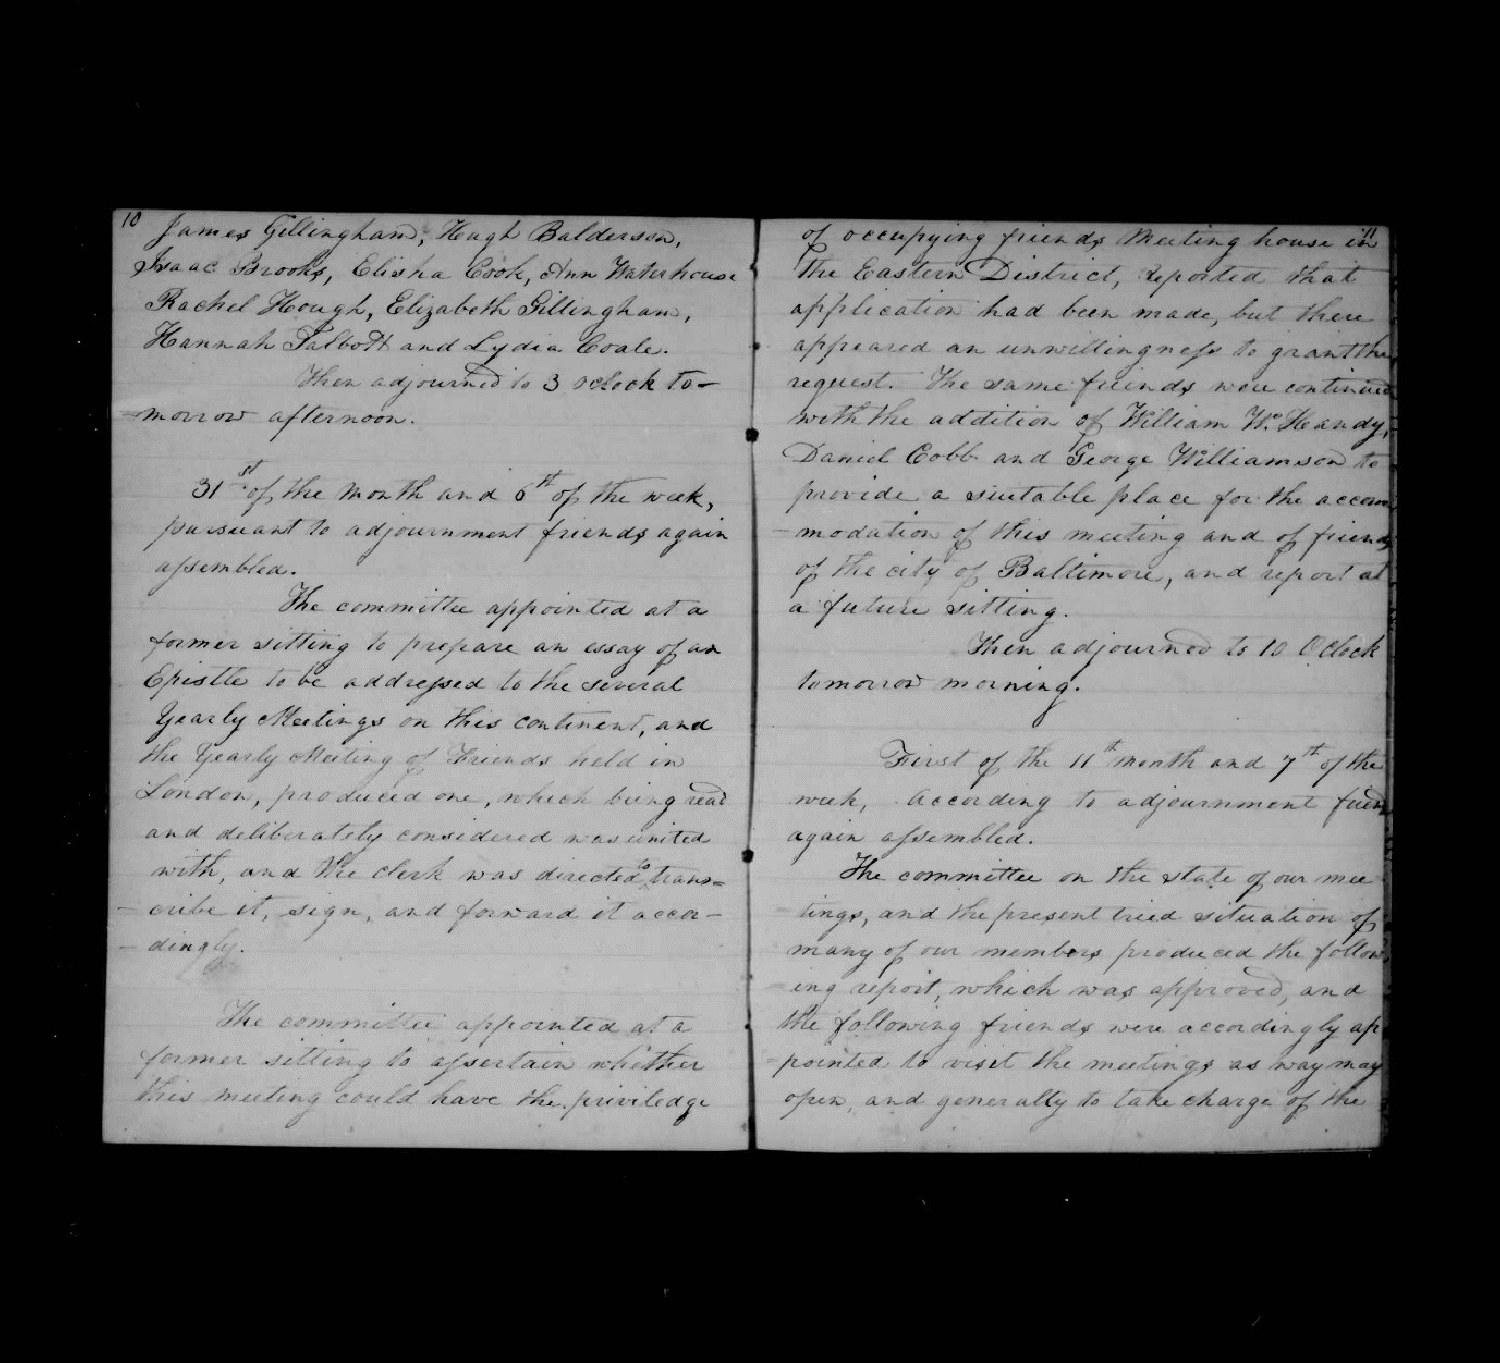 10
James Gillingham, Hugh Balderson,
Isaac Brooks, Elisha Cook, Ann Waterhouse
Rachel Hough, Elizabeth Gillingham,
Hannah Talbott and Lydia Coale.
Then adjourned to 3 oclock to-
-morrow afternoon.
31st of the month and 6th of the week,
pursuant to adjournment friends again
assembled.
The committee appointed at a
former sitting to prepare an essay of an
Epistle to be addressed to the several
Yearly Meetings on this continent, and
the Yearly Meeting of Friends held in
London, produced one, which being read
and deliberately considered was united
with, and the clerk was directed to trans=
-cribe it, sign, and forward it accor-
-dingly.
The committee appointed at a
former sitting to assertain whether
this meeting could have the priviledge
11
of occupying friends Meeting house in
the Eastern District, reported that
application had been made, but there
appeared an unwillingness to grant the
request. The same friends were continued
with the addition of William W. Handy,
Daniel Cobb and George Williamson to
provide a suitable place for the accom
-modation of this meeting and of friends
of the city of Baltimore, and report at
a future sitting.
Then adjourned to 10 Oclock
tomorrow morning.
First of the 11th month and 7th of the
week, According to adjournment friends
again assembled.
The committee on the state of our mee
-tings, and the present tried situation of
many of our members produced the follow
-ing report, which was approved, and
the following friends were accordingly ap
-pointed to visit the meetings as way may
open, and generally to take charge of the